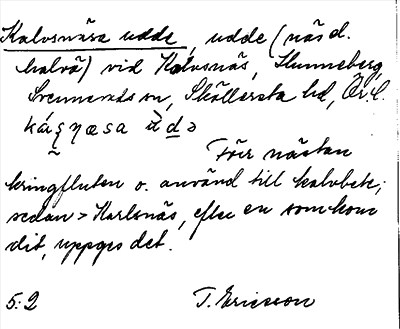 Kalvsnäsa udde, udde (näs d.
halvö) vid Kalvsnäs, Hunneberg,
Svennevads sn, Sköllersta hd, Ör. l.
Förr nästan
kringfluten o. använd till kalvbete;
sedan > Karlsnäs, efter en som kom
dit, uppges det.
5:2 T. Ericsson